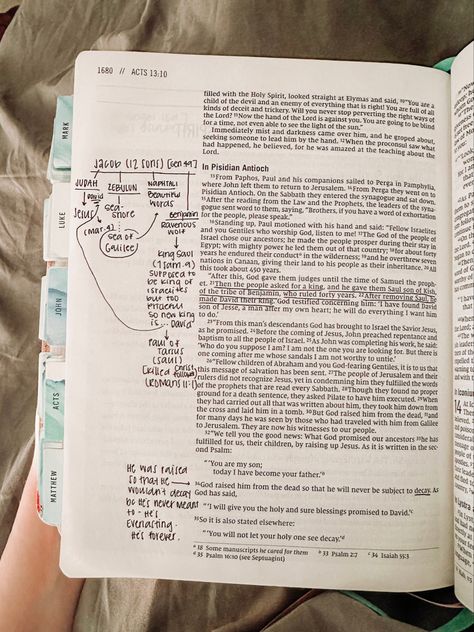 1680 // ACTS 13:10
filled with the Holy Spirit, looked straight at Elymas and said, ¹⁰"You are a
child of the devil and an enemy of everything that is right! You are full of all
kinds of deceit and trickery. Will you never stop perverting the right ways of
the Lord? ¹¹Now the hand of the Lord is against you. You are going to be blind
for a time, not even able to see the light of the sun."
Immediately mist and darkness came over him, and he groped about,
seeking someone to lead him by the hand. ¹²When the proconsul saw what
had happened, he believed, for he was amazed at the teaching about the
Lord.
In Pisidian Antioch
¹³From Paphos, Paul and his companions sailed to Perga in Pamphylia,
where John left them to return to Jerusalem. ¹⁴From Perga they went on to
Pisidian Antioch. On the Sabbath they entered the synagogue and sat down.
¹⁵After the reading from the Law and the Prophets, the leaders of the syna-
gogue sent word to them, saying, "Brothers, if you have a word of exhortation
for the people, please speak."
¹⁶Standing up, Paul motioned with his hand and said: "Fellow Israelites
and you Gentiles who worship God, listen to me! ¹⁷The God of the people of
Israel chose our ancestors; he made the people prosper during their stay in
Egypt; with mighty power he led them out of that country; ¹⁸for about forty
years he endured their conduct ᵃ in the wilderness; ¹⁹and he overthrew seven
nations in Canaan, giving their land to his people as their inheritance. ²⁰All
this took about 450 years.
"After this, God gave them judges until the time of Samuel the proph-
et. ²¹Then the people asked for a king, and he gave them Saul son of Kish,
of the tribe of Benjamin, who ruled forty years. ²²After removing Saul, he
made David their king. God testified concerning him: 'I have found David
son of Jesse, a man after my own heart; he will do everything I want him
to do.'
²³"From this man's descendants God has brought to Israel the Savior Jesus,
as he promised. ²⁴Before the coming of Jesus, John preached repentance and
baptism to all the people of Israel. ²⁵As John was completing his work, he said:
'Who do you suppose I am? I am not the one you are looking for. But there is
one coming after me whose sandals I am not worthy to untie.'
²⁶"Fellow children of Abraham and you God-fearing Gentiles, it is to us that
this message of salvation has been sent. ²⁷The people of Jerusalem and their
rulers did not recognize Jesus, yet in condemning him they fulfilled the words
of the prophets that are read every Sabbath. ²⁸Though they found no proper
ground for a death sentence, they asked Pilate to have him executed. ²⁹When
they had carried out all that was written about him, they took him down from
the cross and laid him in a tomb. ³⁰But God raised him from the dead, ³¹and
for many days he was seen by those who had traveled with him from Galilee
to Jerusalem. They are now his witnesses to our people.
³²"We tell you the good news: What God promised our ancestors ³³he has
fulfilled for us, their children, by raising up Jesus. As it is written in the sec-
ond Psalm:
"'You are my son;
today I have become your father.'ᵇ
³⁴God raised him from the dead so that he will never be subject to decay. As
God has said,
"'I will give you the holy and sure blessings promised to David.'ᶜ
³⁵So it is also stated elsewhere:
"'You will not let your holy one see decay.'ᵈ
ᵃ 18 Some manuscripts he cared for them ᵇ 33 Psalm 2:7 ᶜ 34 Isaiah 55:3
ᵈ 35 Psalm 16:10 (see Septuagint)
JACOB (12 SONS) (Gen 49)
JUDAH
ZEBULUN
NAPHTALI
David
Jesus
sea
shore
Beautiful
words
(Mar. 4)
Sea of
Galilee
Benjamin
Ravenous
wolf
King Saul
(1 Sam. 9)
supposed to
be king of
Israelites
but too
so new
king
is... David
Paul of
Tarsus
(Saul)
(killed Christ
followers)
(Romans 11:1)
He was raised
so that he
wouldn't decay
bc He's never meant
to - He's
Everlasting.
He's forever.
MARK
LUKE
JOHN
ACTS
MATTHEW